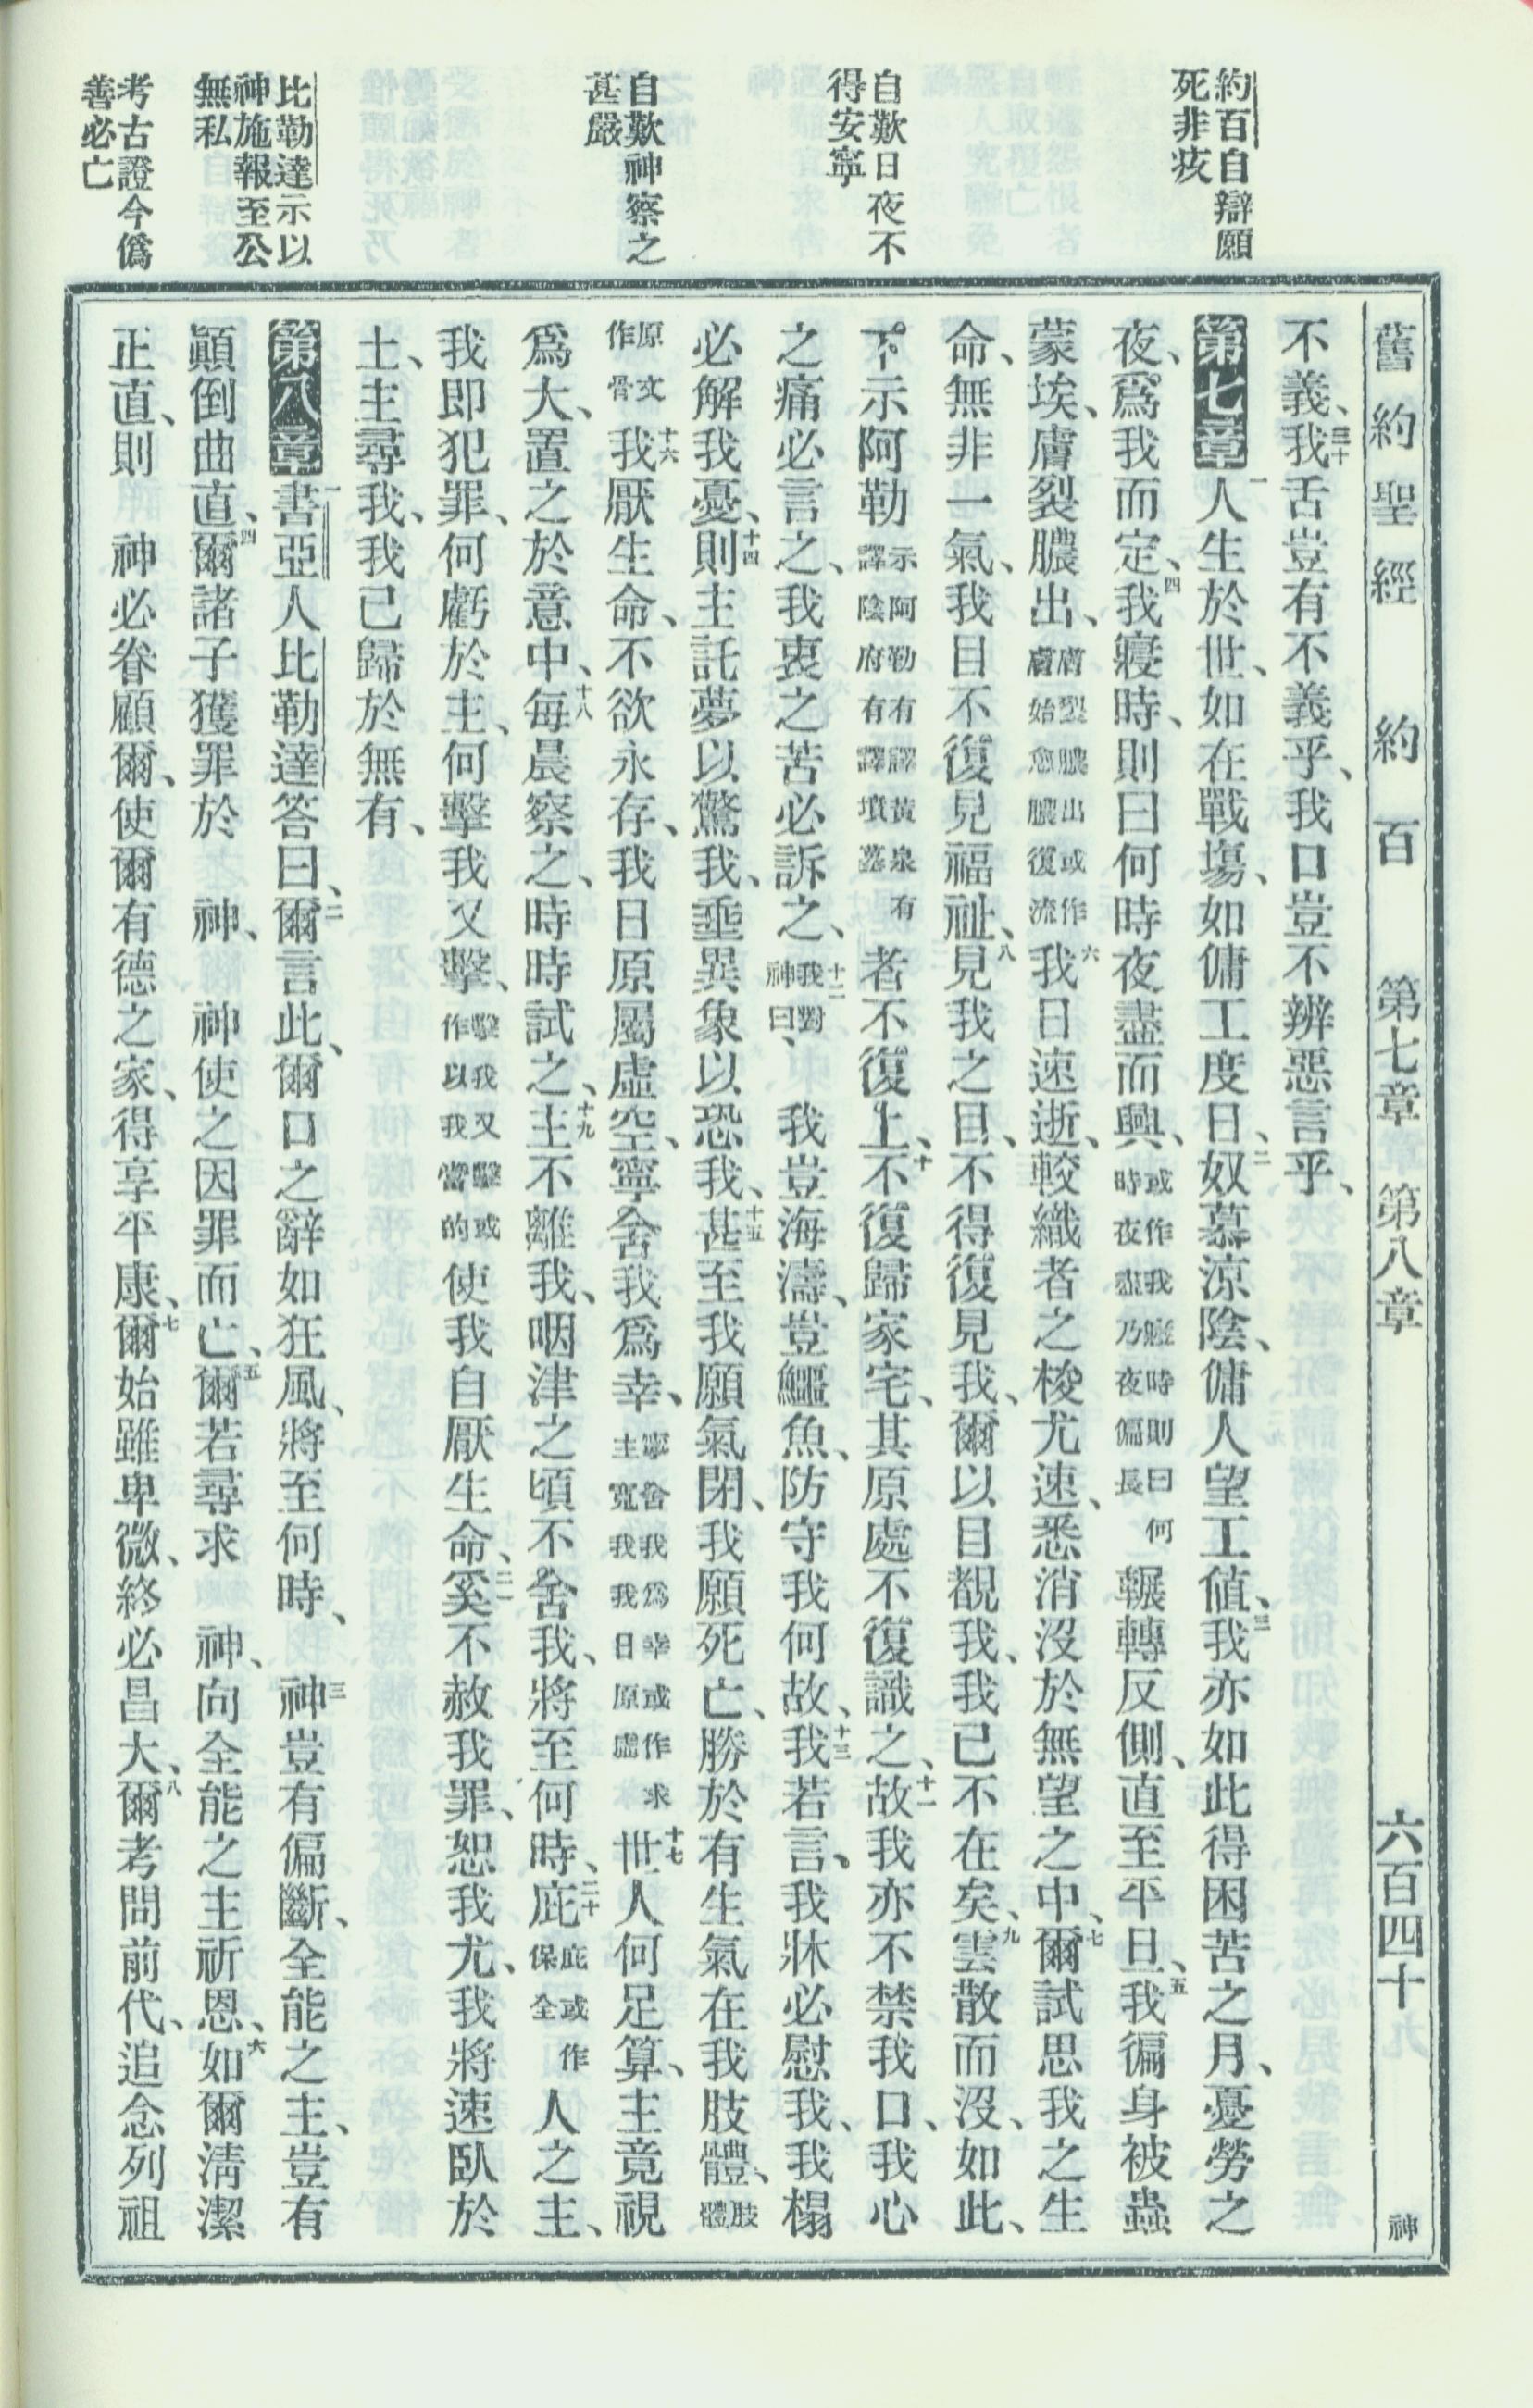 約百自辯願
死非妄
自歎日夜不
得安寧
自歎神察之
甚嚴
比勒達示以
神施報至公
無私
考古證今僞
善必亡
舊約聖經 約百 第七章 第八章 六百四十 神
不義、三十我舌豈有不義乎、我口豈不辨惡言乎、
第七章 一人生於世、如在戰場、如傭工度日、二奴慕涼陰、傭人望工値、三我亦如此得困苦之月、憂勞之
夜、爲我而定、四我寢時、則曰何時夜盡而興、或作我寢時則曰何時夜盡乃夜偏長輾轉反側、直至平旦、五我徧身被蟲
蒙埃、膚裂膿出、膚裂膿出或作膚始愈膿復流六我日速逝、較織者之梭尤速、悉消沒於無望之中、七爾試思我之生
命、無非一氣、我目不復見福祉、八見我之目、不得復見我、爾以目覩我、我已不在矣、九雲散而沒、如此、
下示阿勒示阿勒有譯黃泉有譯陰府有譯墳墓者不復上、十不復歸家宅、其原處不復識之、十一故我亦不禁我口、我心
之痛必言之、我衷之苦必訴之、十二我對神曰、我豈海濤、豈鱷魚、防守我何故、十三我若言、我牀必慰我、我榻
必解我憂、十四則主託夢以驚我、垂異象以恐我、十五甚至我願氣閉、我願死亡、勝於有生氣在我肢體、肢體
原文作骨十六我厭生命、不欲永存、我日原屬虛空、寧舍我爲幸、寧舍我爲幸或作求主寬我我日原虛十七世人何足算、主竟視
爲大、置之於意中、十八每晨察之、時時試之、十九主不離我、咽津之頃不舍我、將至何時、二十庇庇或作保全人之主、
我即犯罪、何虧於主、何擊我又擊、擊我又擊或作以我當的使我自厭生命、二一奚不赦我罪、恕我尤、我將速臥於
土、主尋我、我已歸於無有、
第八章 一書亞人比勒達答曰、二爾言此、爾口之辭如狂風、將至何時、三神豈有偏斷、全能之主、豈有
顚倒曲直、四爾諸子獲罪於 神、 神使之因罪而亡、五爾若尋求 神、向全能之主祈恩、六如爾淸潔
正直、則 神必眷顧爾、使爾有德之家、得享平康、七爾始雖卑微、終必昌大、八爾考問前代、追念列祖